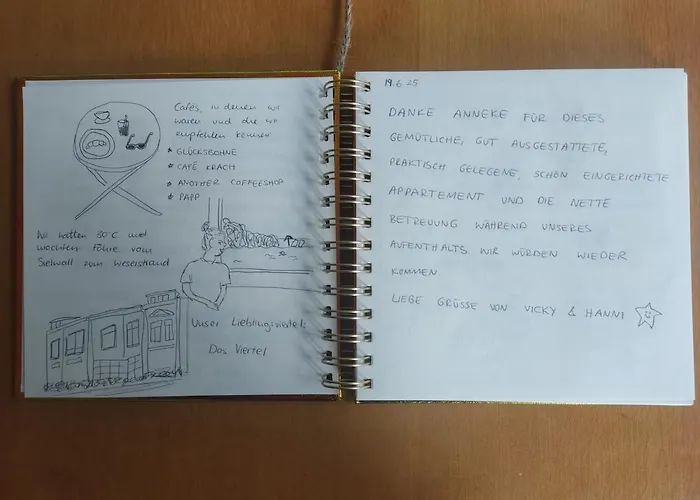 Cafés, in denen wir
waren und die wir
empfehlen können:
* GLÜCKSBOHNE
* CAFÉ KRACH
* ANOTHER COFFEESHOP
* PAPP
Wir hatten 30°C und
mochten Fähre vom
Sielwall zum Weserstrand
Unser Lieblingsviertel:
Das Viertel
19.6.25
DANKE ANNEKE FÜR DIESES
GEMÜTLICHE, GUT AUSGESTATTETE,
PRAKTISCH GELEGENE, SCHÖN EINGERICHTETE
APPARTEMENT UND DIE NETTE
BETREUUNG WÄHREND UNSERES
AUFENTHALTS. WIR WÜRDEN WIEDER
KOMMEN.
LIEBE GRÜSSE VON VICKY & HANNI